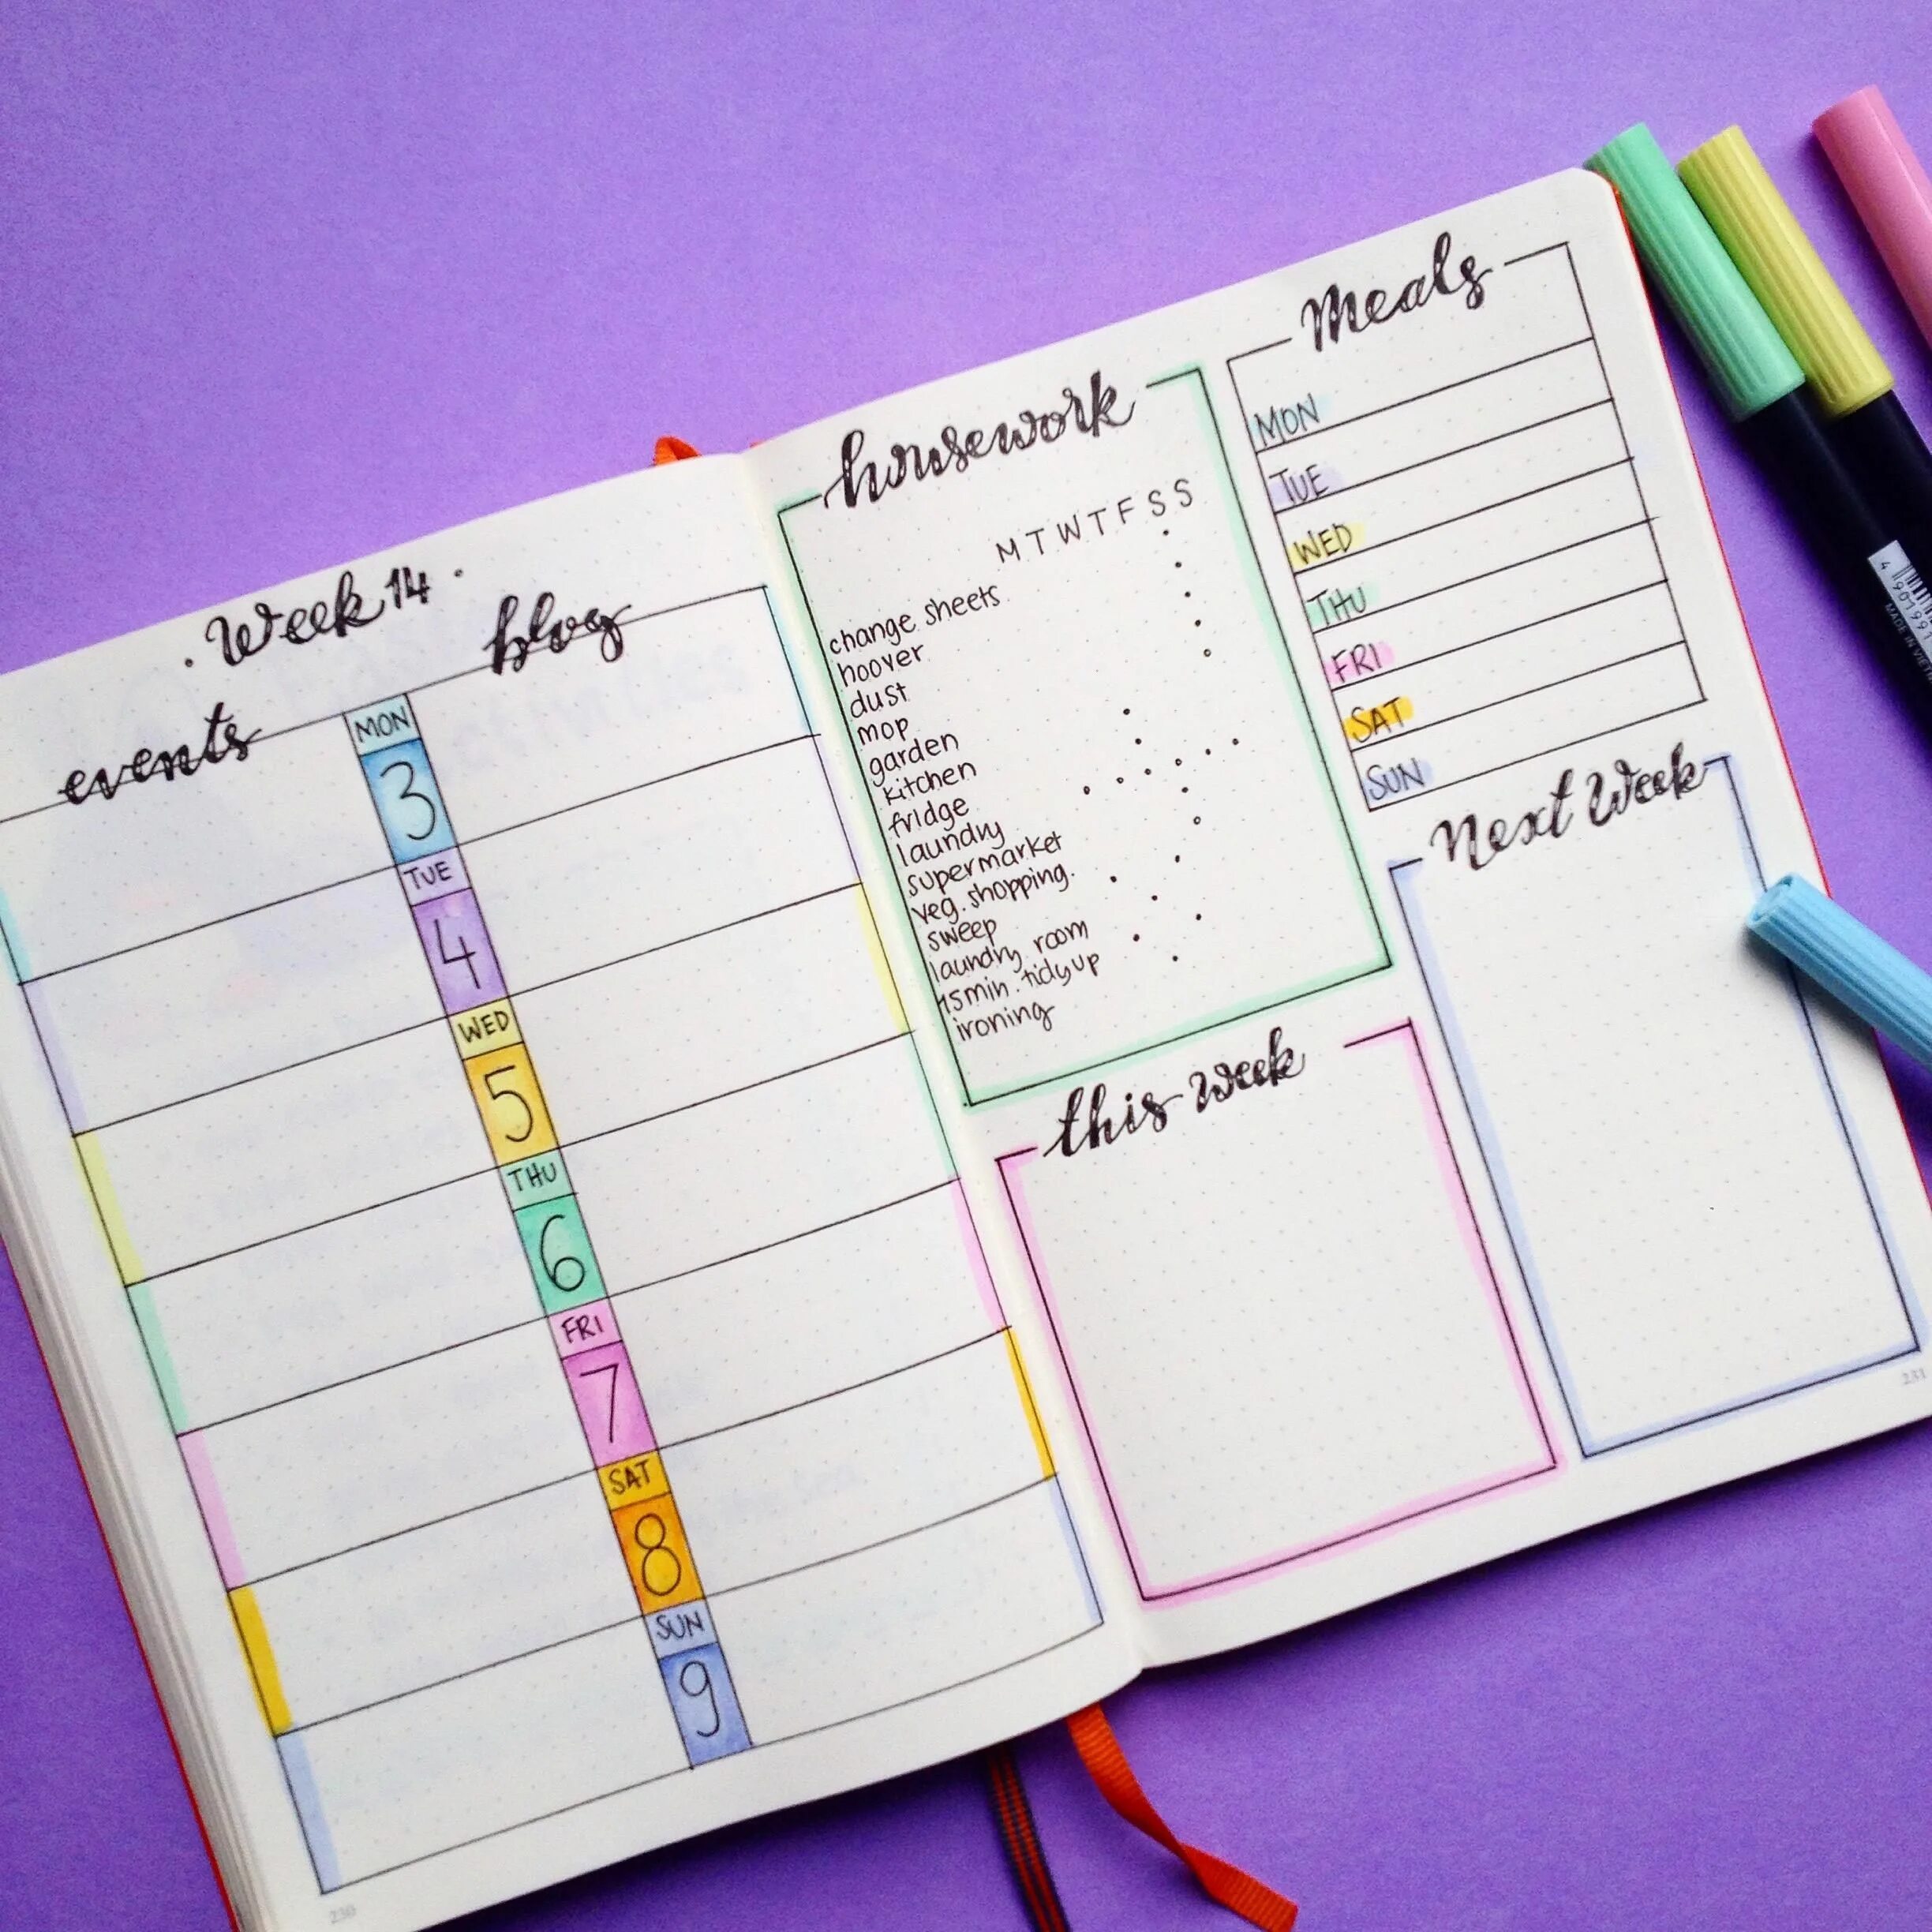 . Week 14 .
events
blog
MON
3
TUE
4
WED
5
THU
6
FRI
7
SAT
8
SUN
9
230
housework
M T W T F S S
change sheets
hoover
dust
mop
garden
kitchen
fridge
laundry
supermarket
veg. shopping.
sweep
laundry room
15min. tidy up
ironing
Meals
MON
TUE
WED
THU
FRI
SAT
SUN
this week
Next Week
231